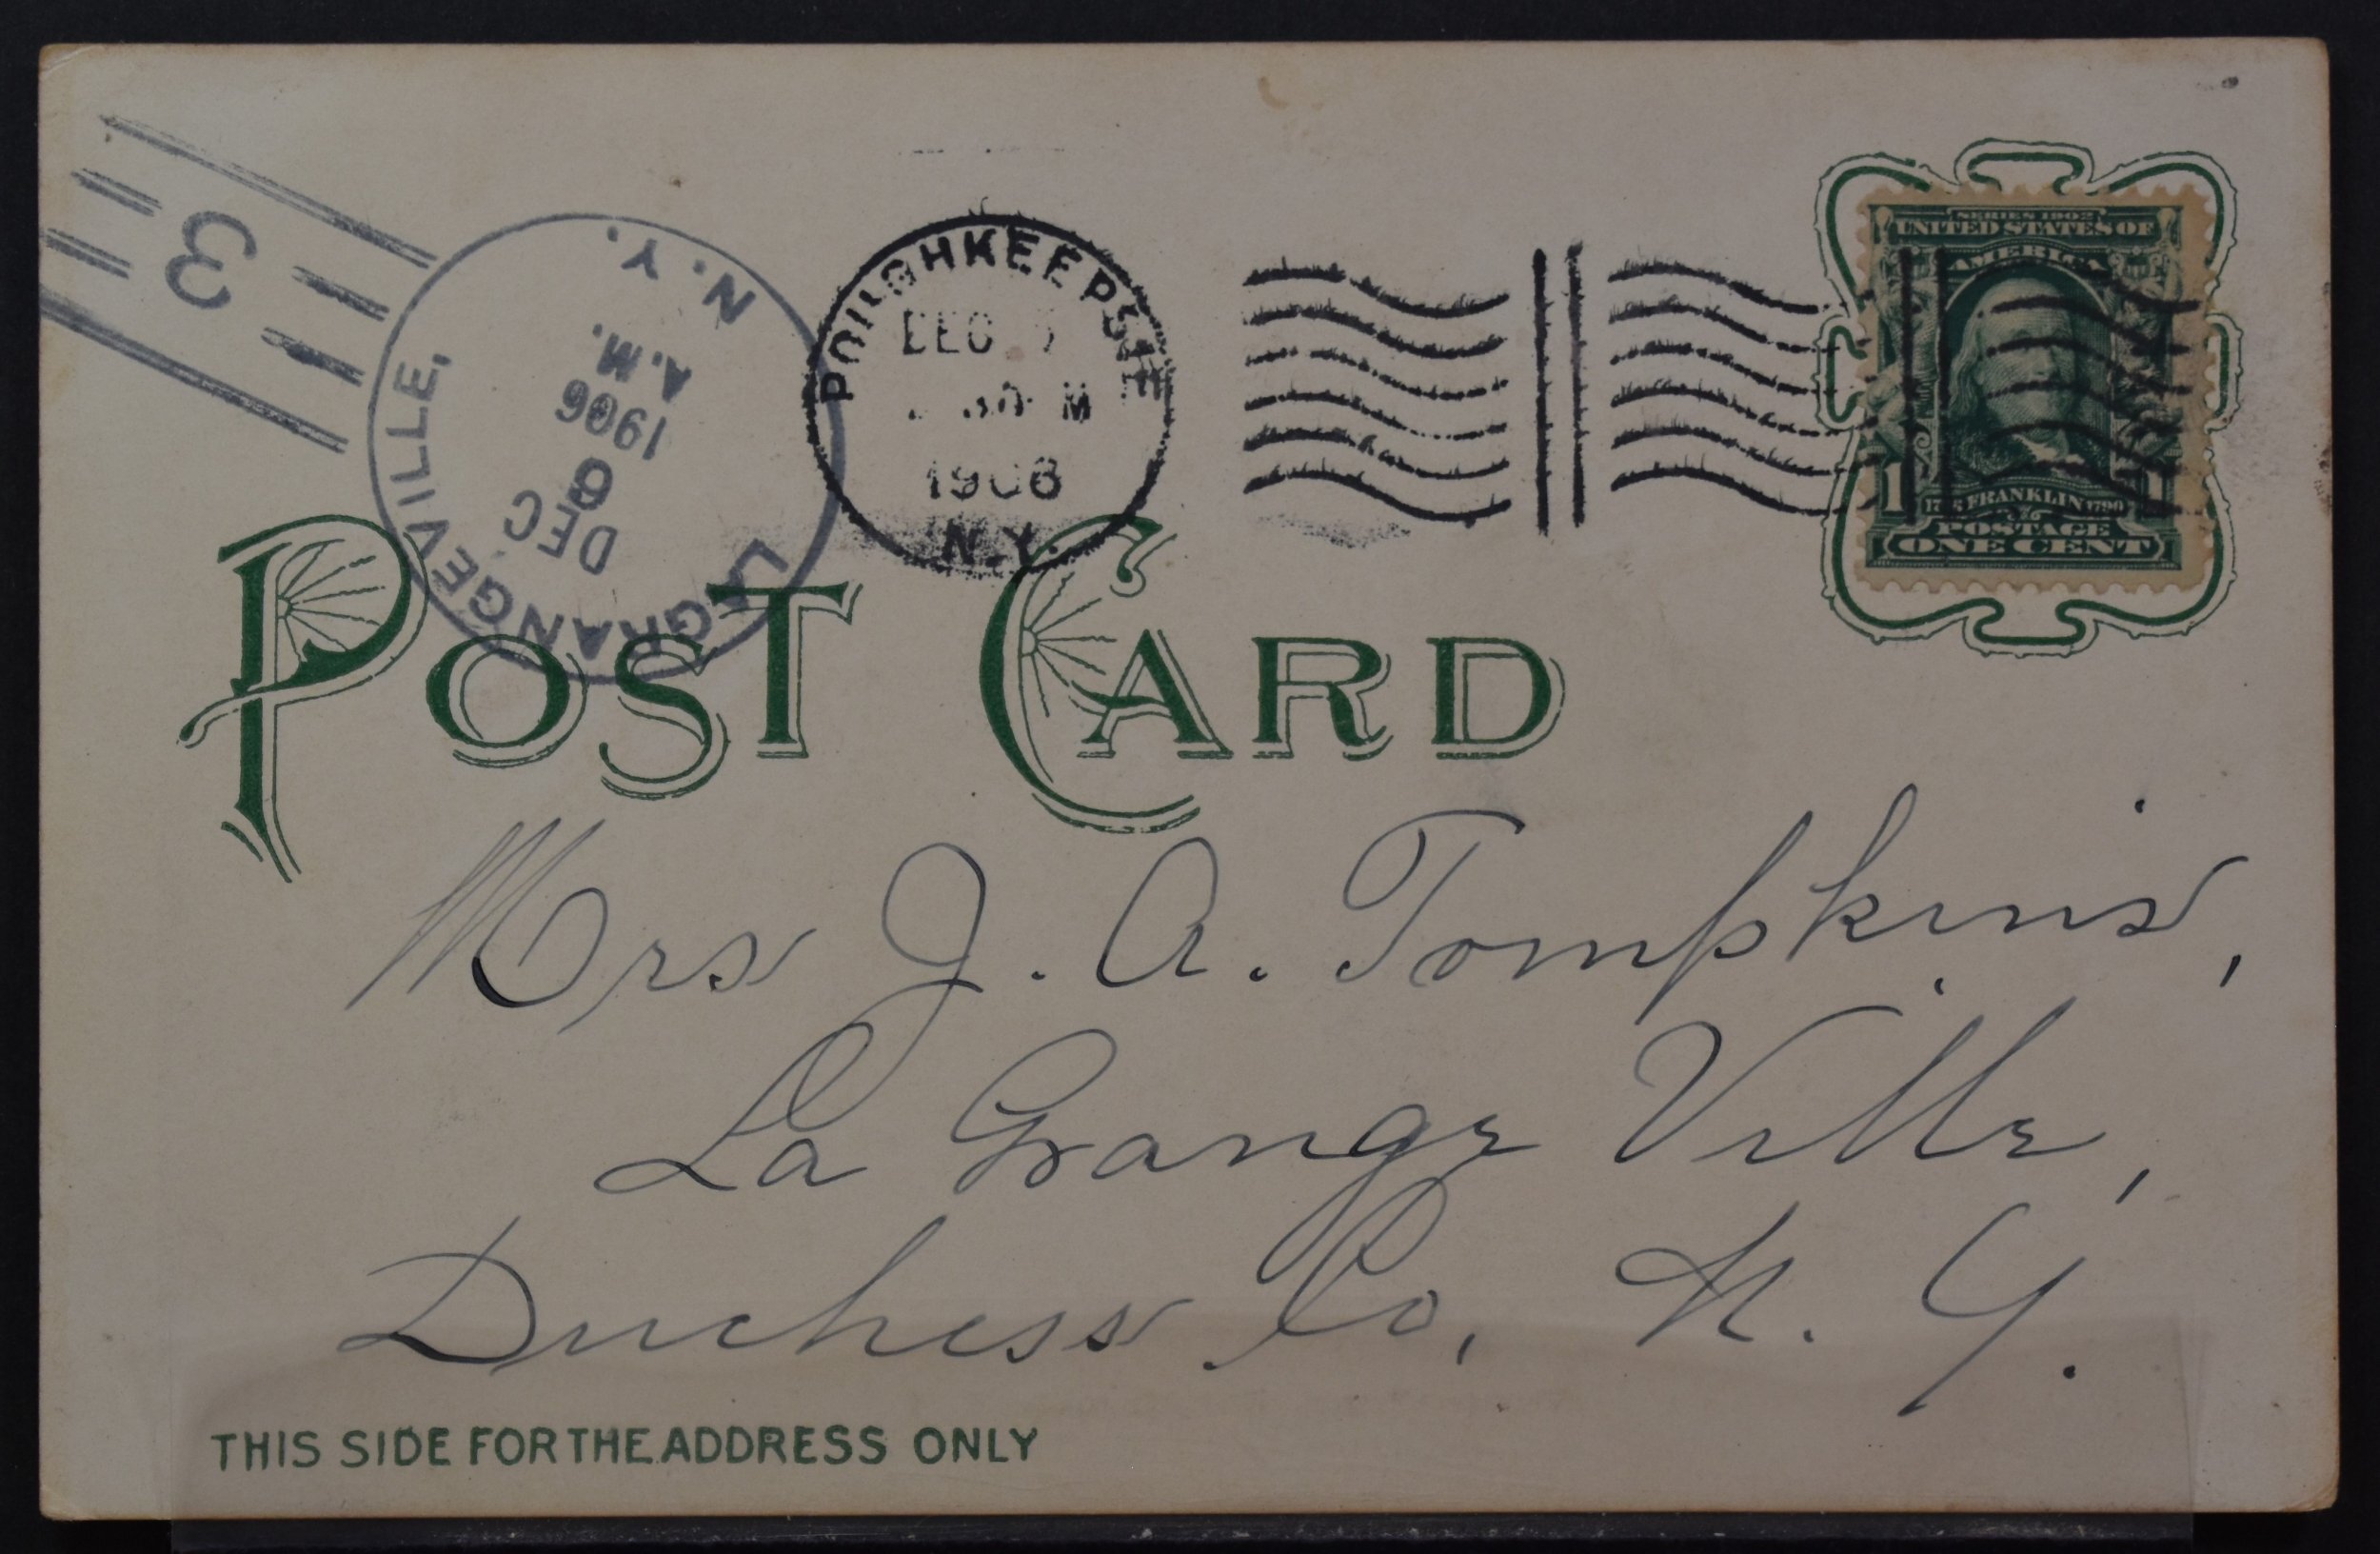 3
LAGRANGEVILLE,
N. Y.
DEC
1906
A.M.
POUGHKEEPSIE
DEC
30 M
1906
N.Y.
SERIES 1902
UNITED STATES OF
AMERICA
1 1
FRANKLIN 1790
POSTAGE
ONE CENT
POST CARD
Mrs J. A. Tompkins,
La Grange Ville,
Duchess Co, N. Y.
THIS SIDE FOR THE ADDRESS ONLY